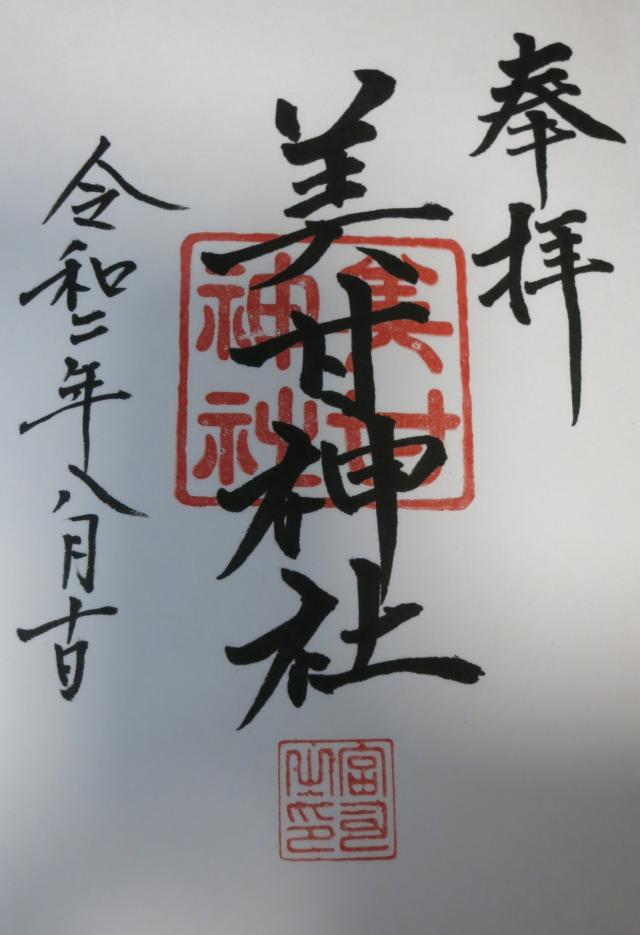 奉拝
美甘神社
令和二年八月十日
美甘神社
宮司之印